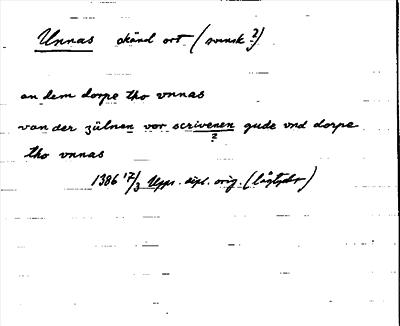 Unnas okänd ort (svensk ?)
an dem dorpe tho vnnas
van der zülnen vor scrivenen gude vnd dorpe
?
tho vnnas
1386 17/3 Upps. dipl. orig. (lågtyskt)